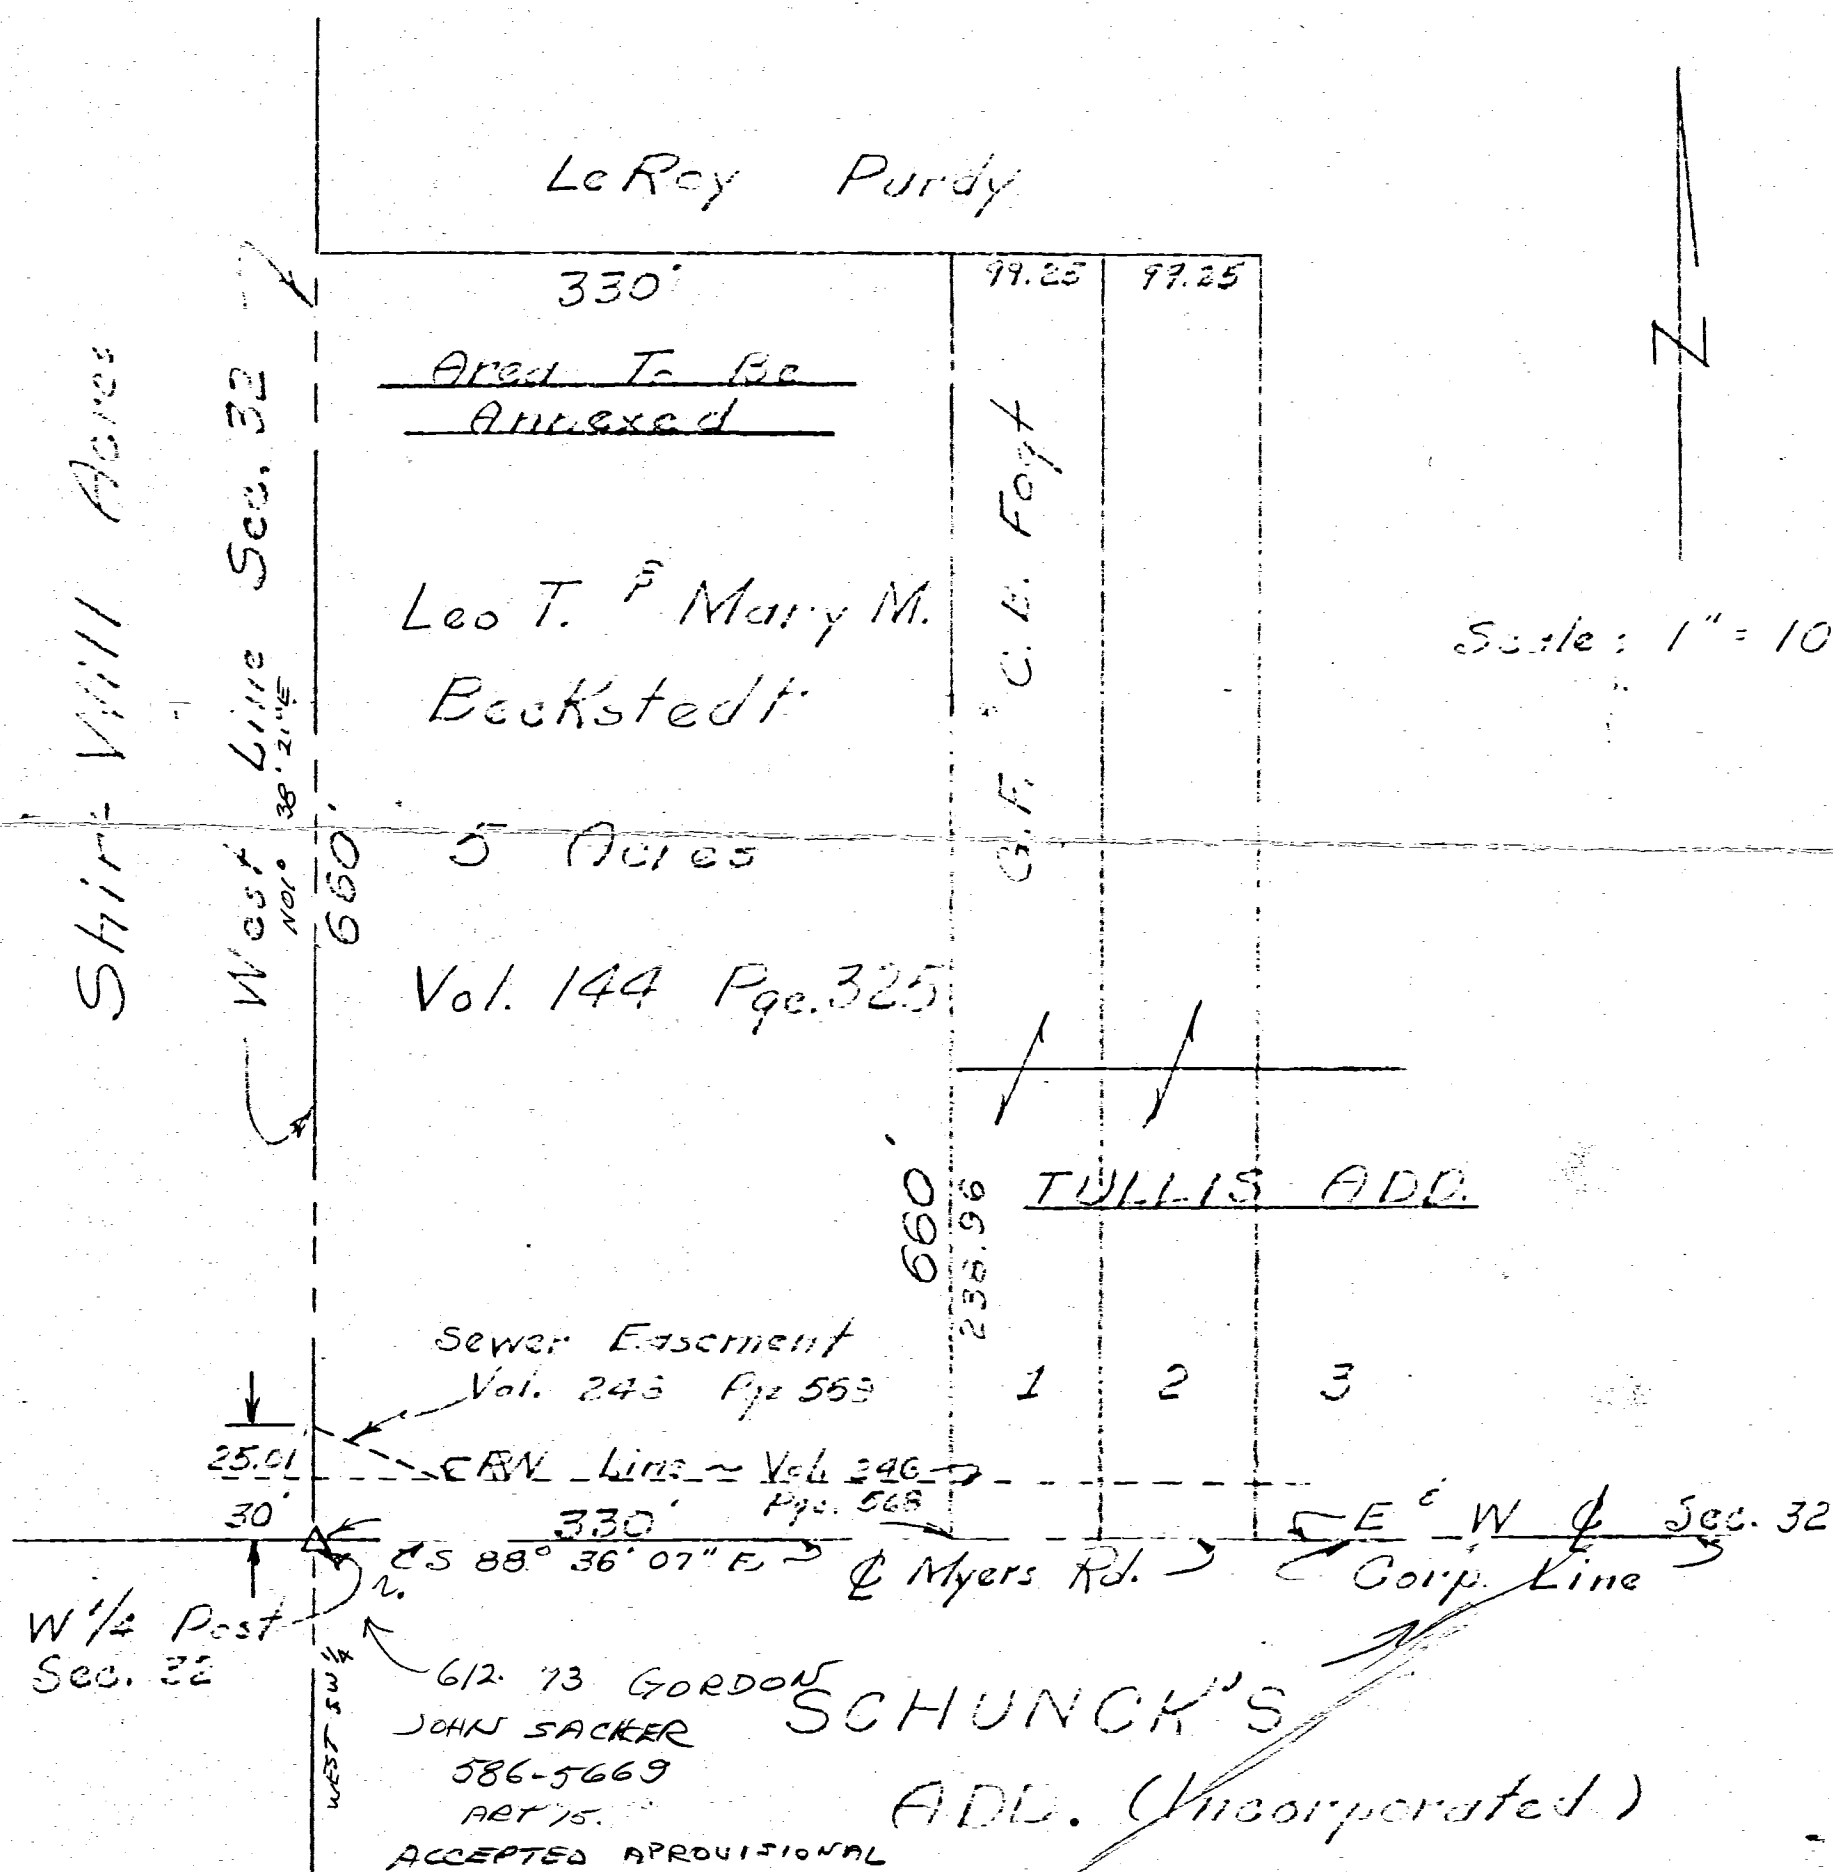 LeRoy Purdy
330'
99.25
99.25
Area To Be
Annexed
Shir-Will Acres
West Line Sec. 32
N01° 38' 21"E
660'
Leo T. & Mary M.
Beckstedt
5 Acres
Vol. 144 Pge. 325
G.F. & C.E. Fogt
N
Scale: 1" = 10
660'
238.96
TULLIS ADD.
Sewer Easement
Vol. 246 Pge 568
1
2
3
25.01'
R/W Line ~ Vol. 246
Pge. 568
30'
330'
E & W ℄ Sec. 32
S 88° 36' 07" E
℄ Myers Rd.
Corp. Line
W 1/4 Post
Sec. 32
WEST SW 1/4
612. 73 GORDON
JOHN SACKER
586-5669
ART 15.
ACCEPTED APROVISIONAL
SCHUNCK'S
ADD. (Incorporated)